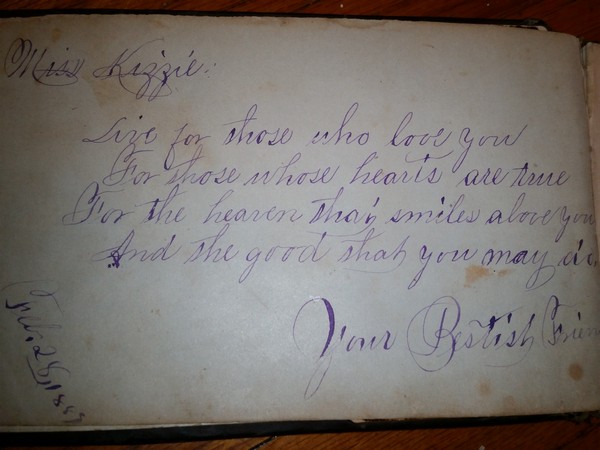 Miss Kizzie.
Live for those who love you
For those whose hearts are true
For the heaven that smiles above you
And the good that you may do.
Your Bestish Frien
Feb. 28,